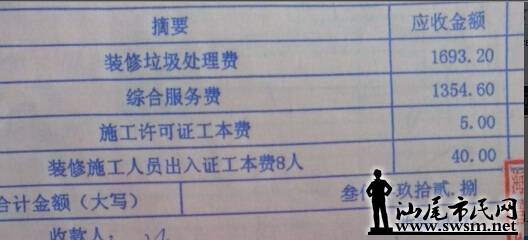 摘要 应收金额
装修垃圾处理费 1693.20
综合服务费 1354.60
施工许可证工本费 5.00
装修施工人员出入证工本费8人 40.00
合计金额（大写） 叁仟 玖拾贰.捌
收款人：
汕尾市民网
www.swsm.net